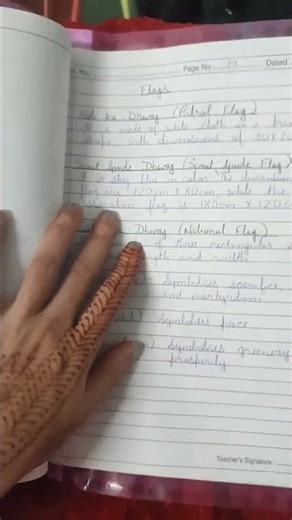 Page No 14 Dated
Flags
ka Dhwaj (Patrol Flag)
made of white cloth in a
shape with dimensions of 30 x 30
Scout Guide Dhwaj (Scout Guide Flag)
is sky blue in color. The dimensions
flag are 120 cm x 80 cm, while the
flag is 180 cm x 120 cm
Dhwaj (National Flag)
of three rectangular
length and width.
Symbolises sacrifice,
and martyrdom.
Symbolises peace
Symbolises greenery
prosperity
Teacher's Signature